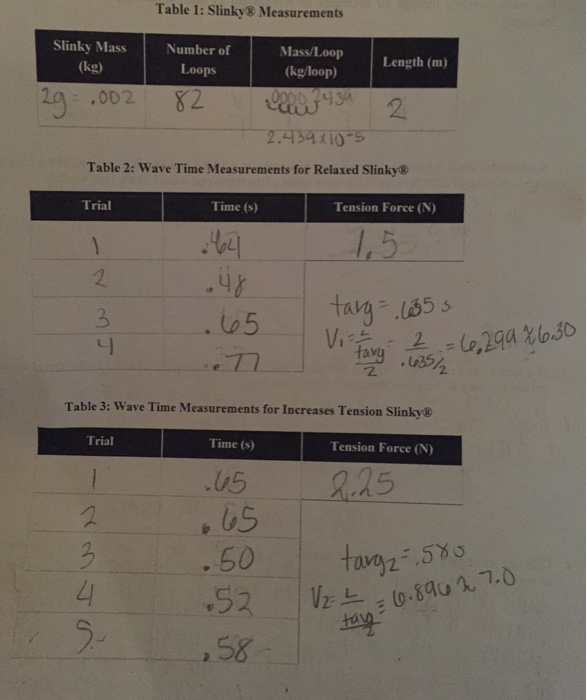 Table 1: Slinky® Measurements
Slinky Mass (kg) Number of Loops Mass/Loop (kg/loop) Length (m)
2g = .002 82 2
2.439x10-5
Table 2: Wave Time Measurements for Relaxed Slinky®
Trial Time (s) Tension Force (N)
1 .64 1.5
2 .48
3 .65
4 .77
tavg = .635 s
V1 = L / tavg/2 = 2 / .635/2 = 6.299 ≈ 6.30
Table 3: Wave Time Measurements for Increases Tension Slinky®
Trial Time (s) Tension Force (N)
1 .65 2.25
2 .65
3 .50
4 .52
5 .58
tavg2 = .58s
V2 = L / tavg/2 = 6.896 ≈ 7.0